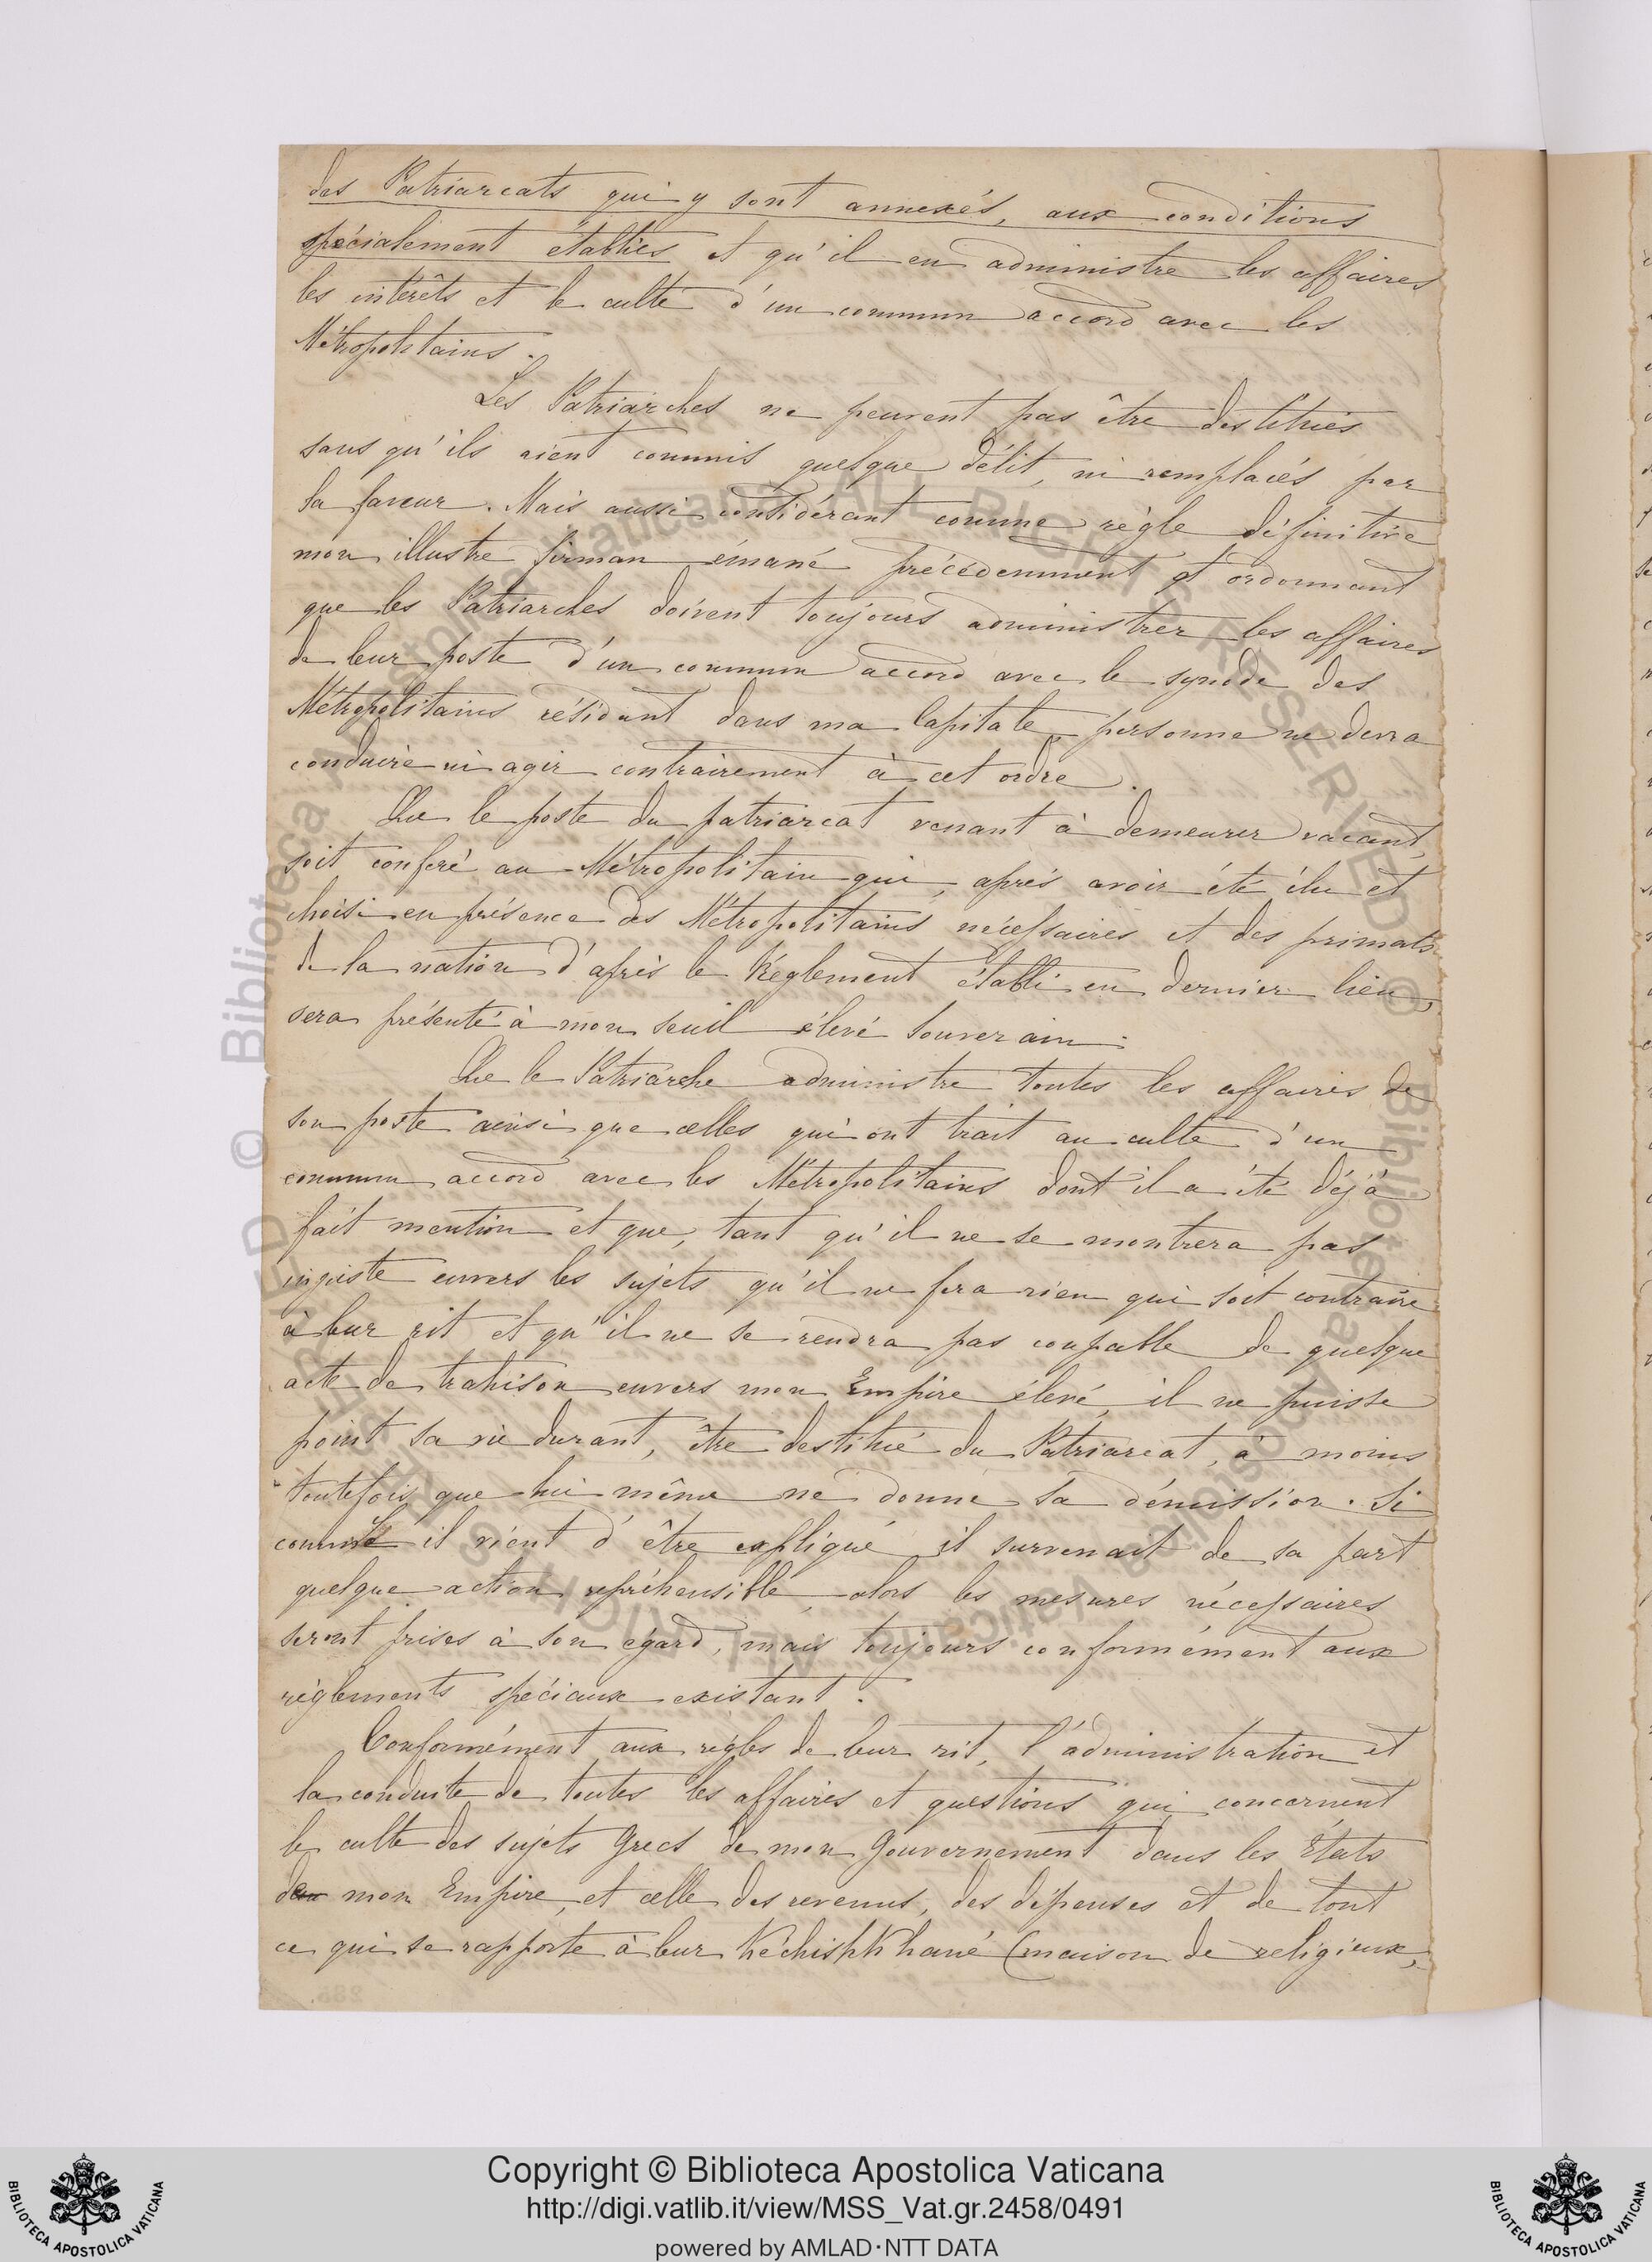 des Patriarcats qui y sont annexés, aux conditions
spécialement établies et qu'il en administre les affaires
les intérêts et le culte d'un commun accord avec les
Métropolitains.
Les Patriarches ne peuvent pas être destitués
sans qu'ils aient commis quelque délit, ni remplacés par
la faveur. Mais aussi considérant comme règle définitive
mon illustre firman émané précédemment et ordonnant
que les Patriarches doivent toujours administrer les affaires
de leur poste d'un commun accord avec le synode des
Métropolitains résidant dans ma Capitale, personne ne devra
conduire ni agir contrairement à cet ordre.
Que le poste du patriarcat venant à demeurer vacant,
soit conferé au Métropolitain qui, après avoir été élu et
choisi en présence des Métropolitains nécessaires et des primats
de la nation d'après le Réglement établi en dernier lieu,
sera présenté à mon seuil élevé Souverain.
Que le Patriarche administre toutes les affaires de
son poste ainsi que celles qui ont trait au culte d'un
commun accord avec les Métropolitains dont il a été déjà
fait mention et que, tant qu'il ne se montrera pas
injuste envers les sujets qu'il ne fera rien qui soit contraire
à leur rit et qu'il ne se rendra pas coupable de quelque
acte de trahison envers mon Empire élevé, il ne puisse
point sa vie durant, être destitué du Patriarcat, à moins
toutefois que lui même ne donne sa démission. Si
comme il vient d'être expliqué il survenait de sa part
quelque action repréhensible, alors les mesures nécessaires
seront prises à son égard, mais toujours conformément aux
règlements spéciaux existant.
Conformément aux règles de leur rit, l'administration et
la conduite de toutes les affaires et questions qui concernent
le culte des sujets Grecs de mon Gouvernement dans les États
de mon Empire, et celle des revenus, des dépenses et de tout
ce qui se rapporte à leur Kéchishkhané (maison de religieux,
© Biblioteca Apostolica Vaticana ALL RIGHTS RESERVED ©
Biblioteca Apostolica Vaticana ALL RIGHTS RESERVED ©
Copyright © Biblioteca Apostolica Vaticana
http://digi.vatlib.it/view/MSS_Vat.gr.2458/0491
powered by AMLAD·NTT DATA
BIBLIOTECA APOSTOLICA VATICANA
BIBLIOTECA APOSTOLICA VATICANA